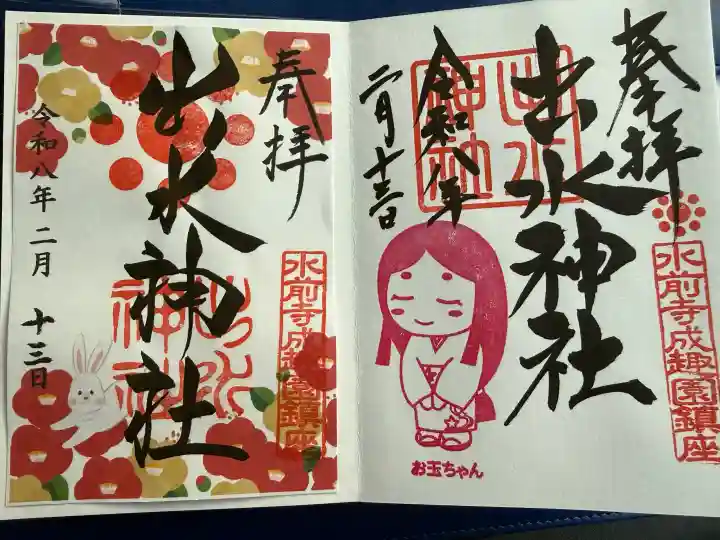 奉拝
出水神社
水前寺成趣園鎮座
出水神社
令和八年
二月十三日
お玉ちゃん
奉拝
出水神社
水前寺成趣園鎮座
出水神社
令和八年二月十三日